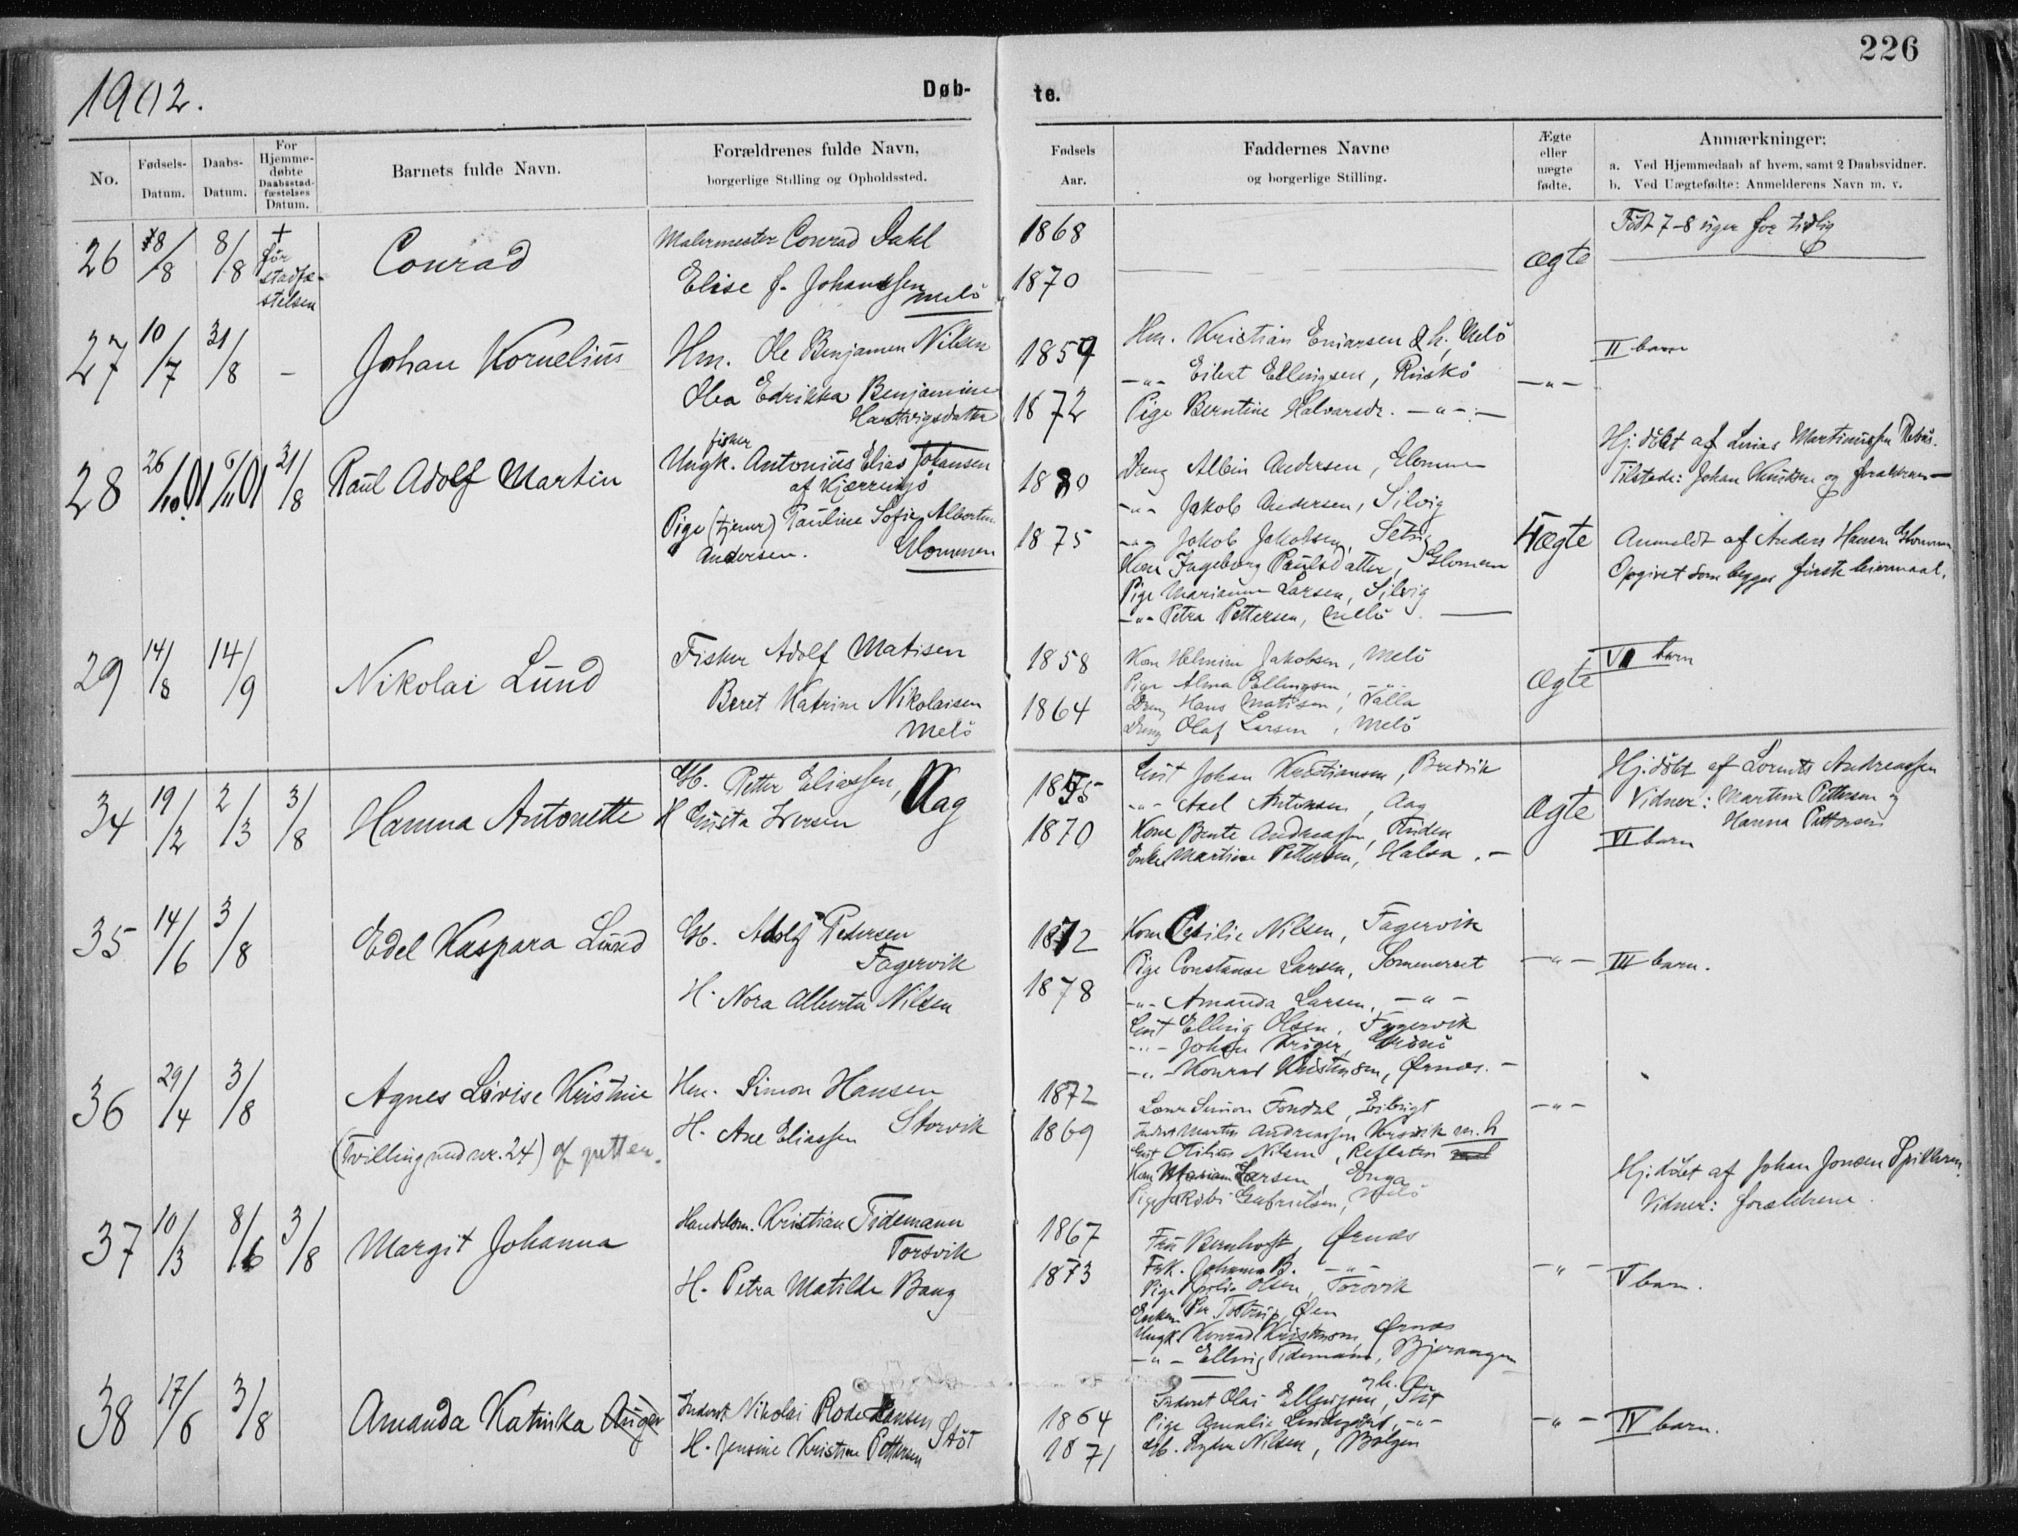 226
1902.
Døb-
te.
No.
Fødsels-
Datum.
Daabs-
Datum.
For
Hjemme-
døbte
Daabsstad-
fæstelses
Datum.
Barnets fulde Navn.
Forældrenes fulde Navn,
borgerlige Stilling og Opholdssted.
Fødsels
Aar.
Faddernes Navne
og borgerlige Stilling.
Ægte
eller
uægte
fødte.
Anmærkninger:
a. Ved Hjemmedaab af hvem, samt 2 Daabsvidner.
b. Ved Uægtefødte: Anmelderens Navn m. v.
26
8/8
8/8
+
før
stadfæ-
stelsen
Conrad
Malermester Conrad Dahl
Elise f. Johanssen
Melö
1868
1870
ægte
Födt 7-8 uger for tidlig
27
10/7
31/8
-
Johan Kornelius
Hm. Ole Benjamen Nilsen
Olea Edrikka Benjamine
Hartvigsdatter
1859
1872
Hm. Kristian Eniarsen & h, Melö
-"- Eilert Ellingsen, Riskö
Pige Berntine Halvarsdr. -"-
-"-
II barn
28
26/10 01
6/11 01
31/8
Paul Adolf Martin
fisker
Ungk. Antonius Elias Johansen
af Kjærringö
Pige (tjener) Pauline Sofie Albertine
Andersen. Glommen
1880
1875
Dreng Albin Andersen, Glommen
-"- Jakob Andersen, Silvig
-"- Jakob Jakobsen, Setvig
Kone Ingeborg Paulsdatter, Glommen
Pige Marianne Larsen, Silvig
-"- Petra Pettersen, Melö
Uægte
Hj. döbt af Linas Martinussen
Tilstede: Johan Knudsen og forældrene
Anmeldt af Anders Hansen Glommen
Opgivet som begges förste leiermaal.
29
14/8
14/9
Nikolai Lund
Fisker Adolf Matisen
Beret Katrine Nikolaisen
Melö
1858
1864
Kone Helmine Jakobsen, Melö
Pige Alma Ellingsen, -"-
Dreng Hans Matisen, Valla
Dreng Olaf Larsen, Melö
ægte
VI barn
34
19/12
2/3
3/8
Hanna Antonette
Gb. Petter Eliassen, Aag
H Gusta Iversen
1875
1870
Gut Johan Kristiansen, Bredvik
-"- Axel Antonsen, Aag
Kone Bente Andreassen, Finden
Enke Martine Pettersen, Halsa
ægte
Hj. döbt af Lorents Andreassen
Vidner: Martine Pettersen og
Hanna Pettersen
VI barn
35
14/6
3/8
Edel Kaspara Lund
Gb. Adolf Pedersen
Fagervik
H. Nora Alberta Nilsen
1872
1878
Kone Cecilie Nilsen, Fagervik
Pige Constanse Larsen, Sommerset
-"- Amanda Larsen, -"-
Gut Elling Olsen, Fagervik
-"- Johan Kröger, Grönö
-"- Konrad Kristensen, Ørnes.
-"-
III barn.
36
29/4
3/8
Agnes Lovise Kristine
(Tvilling med nr. 24) af gutten.
Hm. Simon Hansen
Storvik
H. Ane Eliassen
1872
1869
Lærer Simon Fondal, Esbugt
Inderst Martin Andreassen Korsvik m. h
Gut Otilius Nilsen, Refleten
Kone Mariam Larsen, Enga
Pige Jakobi Gabrielsen, Melö
-"-
37
10/3
8/6
3/8
Margit Johanna
Handelsm. Kristian Tidemann
Torsvik
H. Petra Matilde Bang
1867
1873
Fru Bernhoft, Ørnæs
Frk. Johanna B. -"-
Pige Julie Olsen, Torsvik
Enkem. Per Tostrup, Øen
Ungk. Konrad Kristensen, Ørnes
-"- Elling Tidemann, Bjerangen
-"-
Hj. döbt af Johan Jonsen Spilderen
Vidner: forældrene.
V barn.
38
17/6
3/8
Amanda Katinka Auger
Inderst Nikolai Rode Hansen
Stöt
H. Jensine Kristine Pettersen
1864
1871
Inderst Olai Ellingsen og h. Stöt
Pige Amalie Lindegård, -"-
Gb. Nilsen, Bolgen
-"-
IV barn.